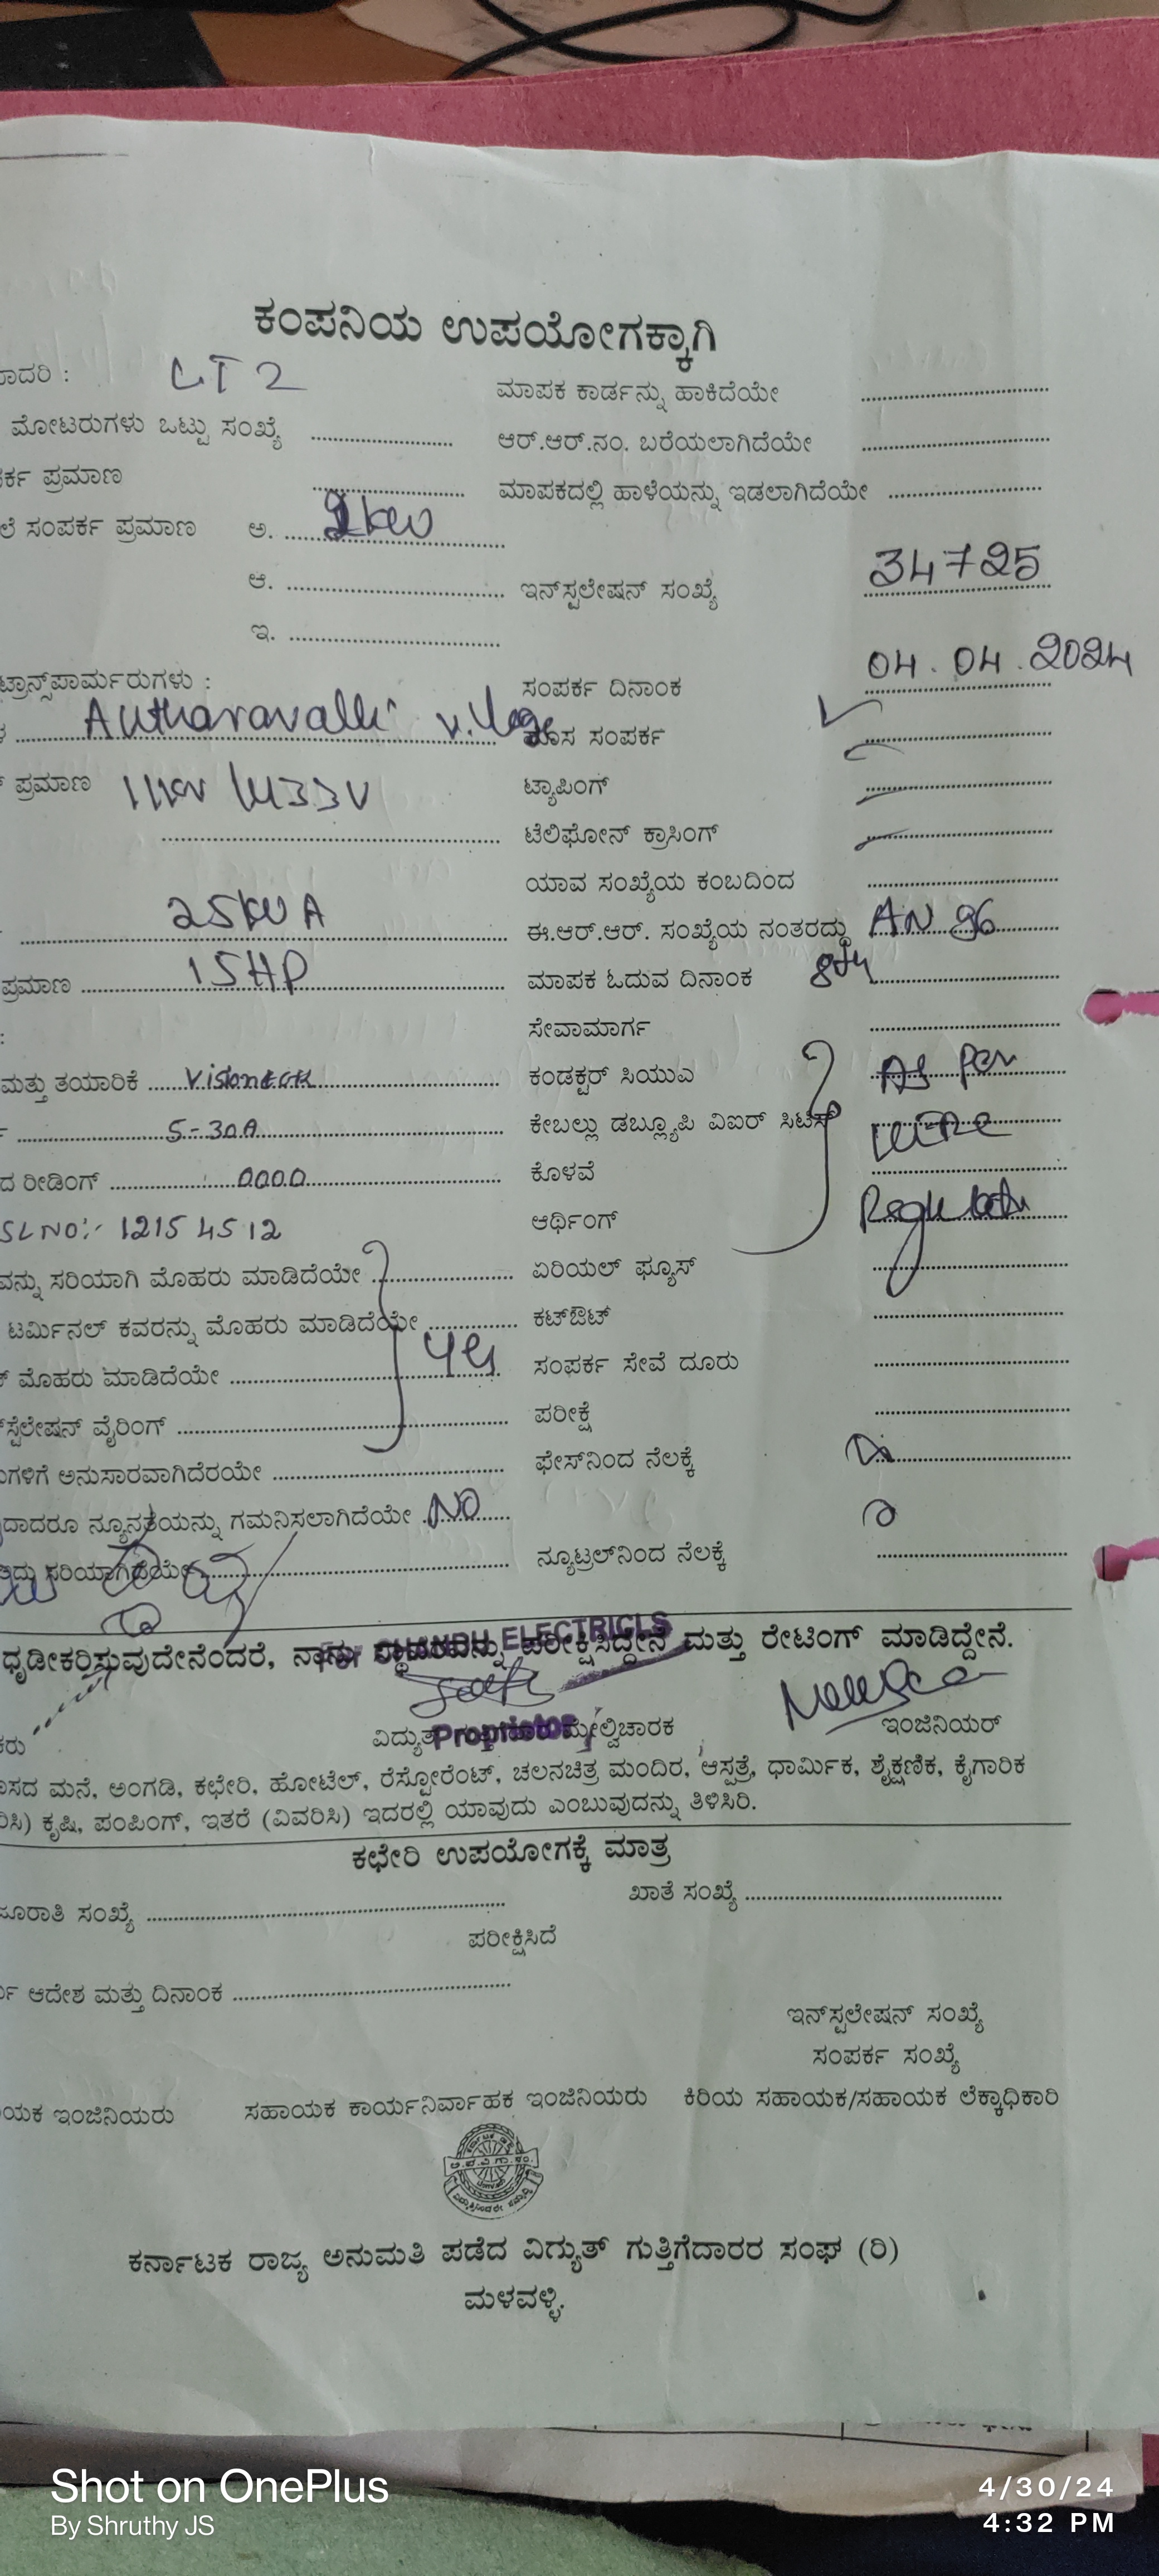 ಕಂಪನಿಯ ಉಪಯೋಗಕ್ಕಾಗಿ
ಾದರಿ : LT 2 ಮಾಪಕ ಕಾರ್ಡನ್ನು ಹಾಕಿದೆಯೇ
ಮೋಟರುಗಳು ಒಟ್ಟು ಸಂಖ್ಯೆ ಆರ್.ಆರ್.ನಂ. ಬರೆಯಲಾಗಿದೆಯೇ
ರ್ಕ ಪ್ರಮಾಣ ಮಾಪಕದಲ್ಲಿ ಹಾಳೆಯನ್ನು ಇಡಲಾಗಿದೆಯೇ
ಲೆ ಸಂಪರ್ಕ ಪ್ರಮಾಣ ಅ. kw
ಆ. ಇನ್‌ಸ್ಟಲೇಷನ್ ಸಂಖ್ಯೆ 34725
ಇ.
ಟ್ರಾನ್ಸ್‌ಪಾರ್ಮರುಗಳು : ಸಂಪರ್ಕ ದಿನಾಂಕ 04.04.2024
Antharavalli village ಹೊಸ ಸಂಪರ್ಕ
ಪ್ರಮಾಣ ಟ್ಯಾಪಿಂಗ್
ಟೆಲಿಫೋನ್ ಕ್ರಾಸಿಂಗ್
ಯಾವ ಸಂಖ್ಯೆಯ ಕಂಬದಿಂದ
25KVA ಈ.ಆರ್.ಆರ್. ಸಂಖ್ಯೆಯ ನಂತರದ್ದು AN 96
ಪ್ರಮಾಣ 15HP ಮಾಪಕ ಓದುವ ದಿನಾಂಕ 8th
: ಸೇವಾಮಾರ್ಗ
ಮತ್ತು ತಯಾರಿಕೆ Visiontek ಕಂಡಕ್ಟರ್ ಸಿಯುಎ As per
5-30A ಕೇಬಲ್ಲು ಡಬ್ಲ್ಯೂಪಿ ವಿಐರ್ ಸಿಟಿಸ್ wire
ದ ರೀಡಿಂಗ್ 0000 ಕೊಳವೆ
SL NO:- 12154512 ಆರ್ಥಿಂಗ್ Regulation
ವನ್ನು ಸರಿಯಾಗಿ ಮೊಹರು ಮಾಡಿದೆಯೇ ಏರಿಯಲ್ ಫ್ಯೂಸ್
ಟರ್ಮಿನಲ್ ಕವರನ್ನು ಮೊಹರು ಮಾಡಿದೆಯೇ ಕಟ್‌ಔಟ್
ಮೊಹರು ಮಾಡಿದೆಯೇ yes ಸಂಪರ್ಕ ಸೇವೆ ದೂರು
ಸ್ಟೆಲೇಷನ್ ವೈರಿಂಗ್ ಪರೀಕ್ಷೆ
ಗಳಿಗೆ ಅನುಸಾರವಾಗಿದೆರಯೇ ಫೇಸ್‌ನಿಂದ ನೆಲಕ್ಕೆ
ದಾದರೂ ನ್ಯೂನತೆಯನ್ನು ಗಮನಿಸಲಾಗಿದೆಯೇ NO
ಇದು ಸರಿಯಾಗಿದೆಯೇ ನ್ಯೂಟ್ರಲ್‌ನಿಂದ ನೆಲಕ್ಕೆ
For CHANDU ELECTRICLS
ಧೃಡೀಕರಿಸುವುದೇನೆಂದರೆ, ನಾನು ಸ್ಥಾವರವನ್ನು ಪರೀಕ್ಷಿಸಿದ್ದೇನೆ ಮತ್ತು ರೇಟಿಂಗ್ ಮಾಡಿದ್ದೇನೆ.
ಕರು ವಿದ್ಯುತ್ ಮೇಲ್ವಿಚಾರಕ ಇಂಜಿನಿಯರ್
Proprietor
ಾಸದ ಮನೆ, ಅಂಗಡಿ, ಕಛೇರಿ, ಹೋಟೆಲ್, ರೆಸ್ಟೋರೆಂಟ್, ಚಲನಚಿತ್ರ ಮಂದಿರ, ಆಸ್ಪತ್ರೆ, ಧಾರ್ಮಿಕ, ಶೈಕ್ಷಣಿಕ, ಕೈಗಾರಿಕ
ರಿಸಿ) ಕೃಷಿ, ಪಂಪಿಂಗ್, ಇತರೆ (ವಿವರಿಸಿ) ಇದರಲ್ಲಿ ಯಾವುದು ಎಂಬುವುದನ್ನು ತಿಳಿಸಿರಿ.
ಕಛೇರಿ ಉಪಯೋಗಕ್ಕೆ ಮಾತ್ರ
ಜೂರಾತಿ ಸಂಖ್ಯೆ ಖಾತೆ ಸಂಖ್ಯೆ
ಪರೀಕ್ಷಿಸಿದೆ
ಆದೇಶ ಮತ್ತು ದಿನಾಂಕ
ಇನ್‌ಸ್ಟಲೇಷನ್ ಸಂಖ್ಯೆ
ಸಂಪರ್ಕ ಸಂಖ್ಯೆ
ಯಕ ಇಂಜಿನಿಯರು ಸಹಾಯಕ ಕಾರ್ಯನಿರ್ವಾಹಕ ಇಂಜಿನಿಯರು ಕಿರಿಯ ಸಹಾಯಕ/ಸಹಾಯಕ ಲೆಕ್ಕಾಧಿಕಾರಿ
ಕರ್ನಾಟಕ ರಾಜ್ಯ ಅನುಮತಿ ಪಡೆದ ವಿದ್ಯುತ್ ಗುತ್ತಿಗೆದಾರರ ಸಂಘ (ರಿ)
ಮಳವಳ್ಳಿ.
Shot on OnePlus 4/30/24
By Shruthy JS 4:32 PM